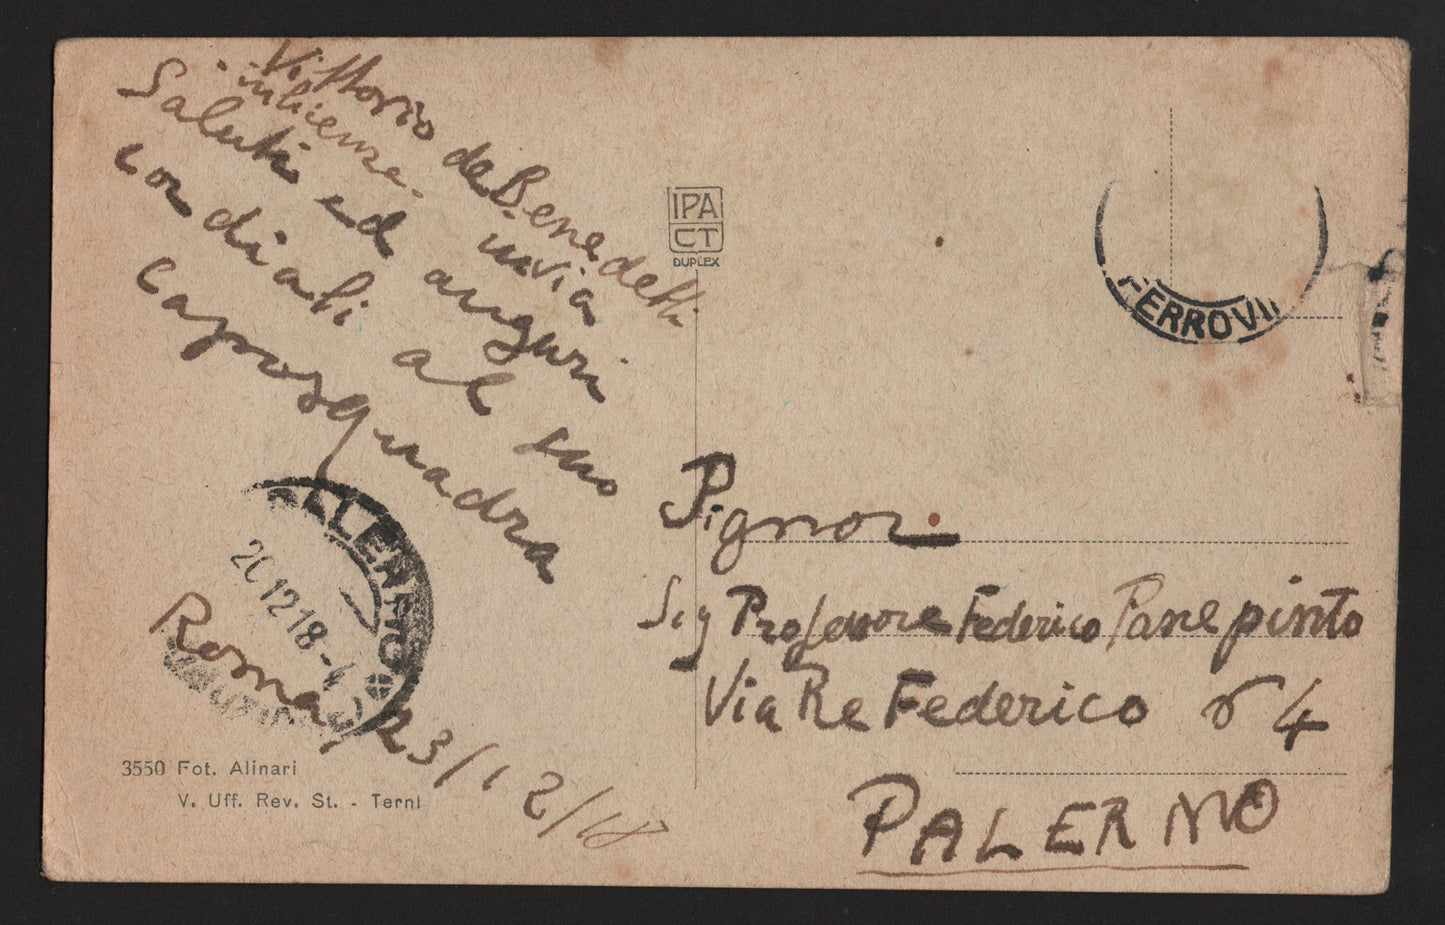 Vittorio de Benedetti
in licenza - invia
Saluti ed auguri
cordiali al suo
caposquadra
Roma, 23/12/18
PALERMO
2012 18-4
3550 Fot. Alinari
V. Uff. Rev. St. - Terni
IPA
CT
DUPLEX
FERROVI
Signor
Sig Professore Federico Panepinto
Via Re Federico 4
PALERMO